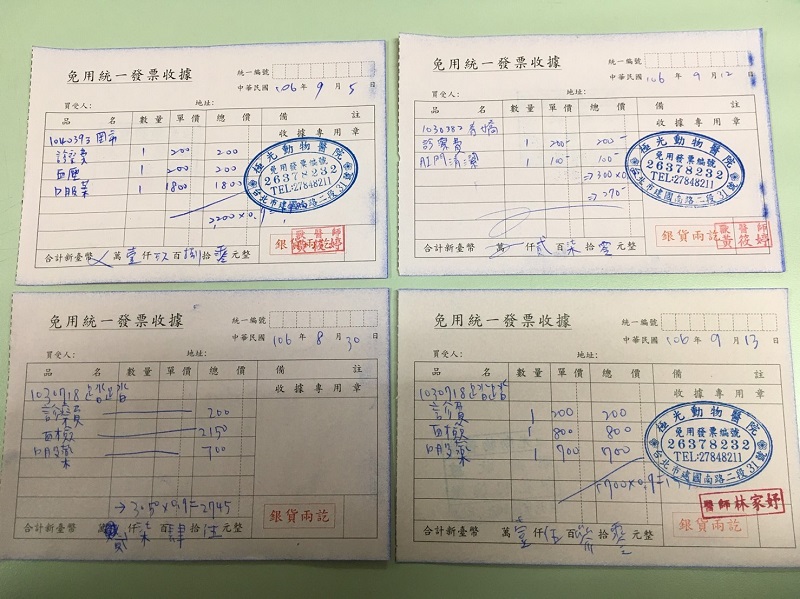 免用統一發票收據
統一編號
中華民國 106 年 9 月 5
買受人: 地址:
品 名 數量 單價 總價 備 註
收據專用章
診察費 1 200 200
血壓 1 200 200
口服藥 1 1800 1800
2200×0.9
極光動物醫院
免用發票編號
26378232
TEL:27848211
台北市建國南路二段31號
銀貨兩訖
獸醫師
黃筱婷
合計新臺幣 萬壹仟玖百捌拾零元整
免用統一發票收據
統一編號
中華民國 106 年 9 月 12
買受人: 地址:
品 名 數量 單價 總價 備 註
收據專用章
診察費 1 200- 200-
肛門清潔 1 100- 100-
→300×0.
→270-
極光動物醫院
免用發票編號
26378232
TEL:27848211
台北市建國南路二段31號
銀貨兩訖
獸醫師
黃筱婷
合計新臺幣 萬 仟貳百柒拾零元整
免用統一發票收據
統一編號
中華民國 106 年 8 月 30
買受人: 地址:
品 名 數量 單價 總價 備 註
收據專用章
1030718
診察費 200
血檢 2150
口服藥 700
→3050×0.9=2745
銀貨兩訖
合計新臺幣 萬貳仟柒百肆拾伍元整
免用統一發票收據
統一編號
中華民國 106 年 9 月 13
買受人: 地址:
品 名 數量 單價 總價 備 註
收據專用章
1030718
診察費 1 200 200
血檢 1 800 800
口服藥 1 700 700
1700×0.9=1
極光動物醫院
免用發票編號
26378232
TEL:27848211
台北市建國南路二段31號
醫師 林家妤
銀貨兩訖
合計新臺幣 萬壹仟伍百參拾零元整